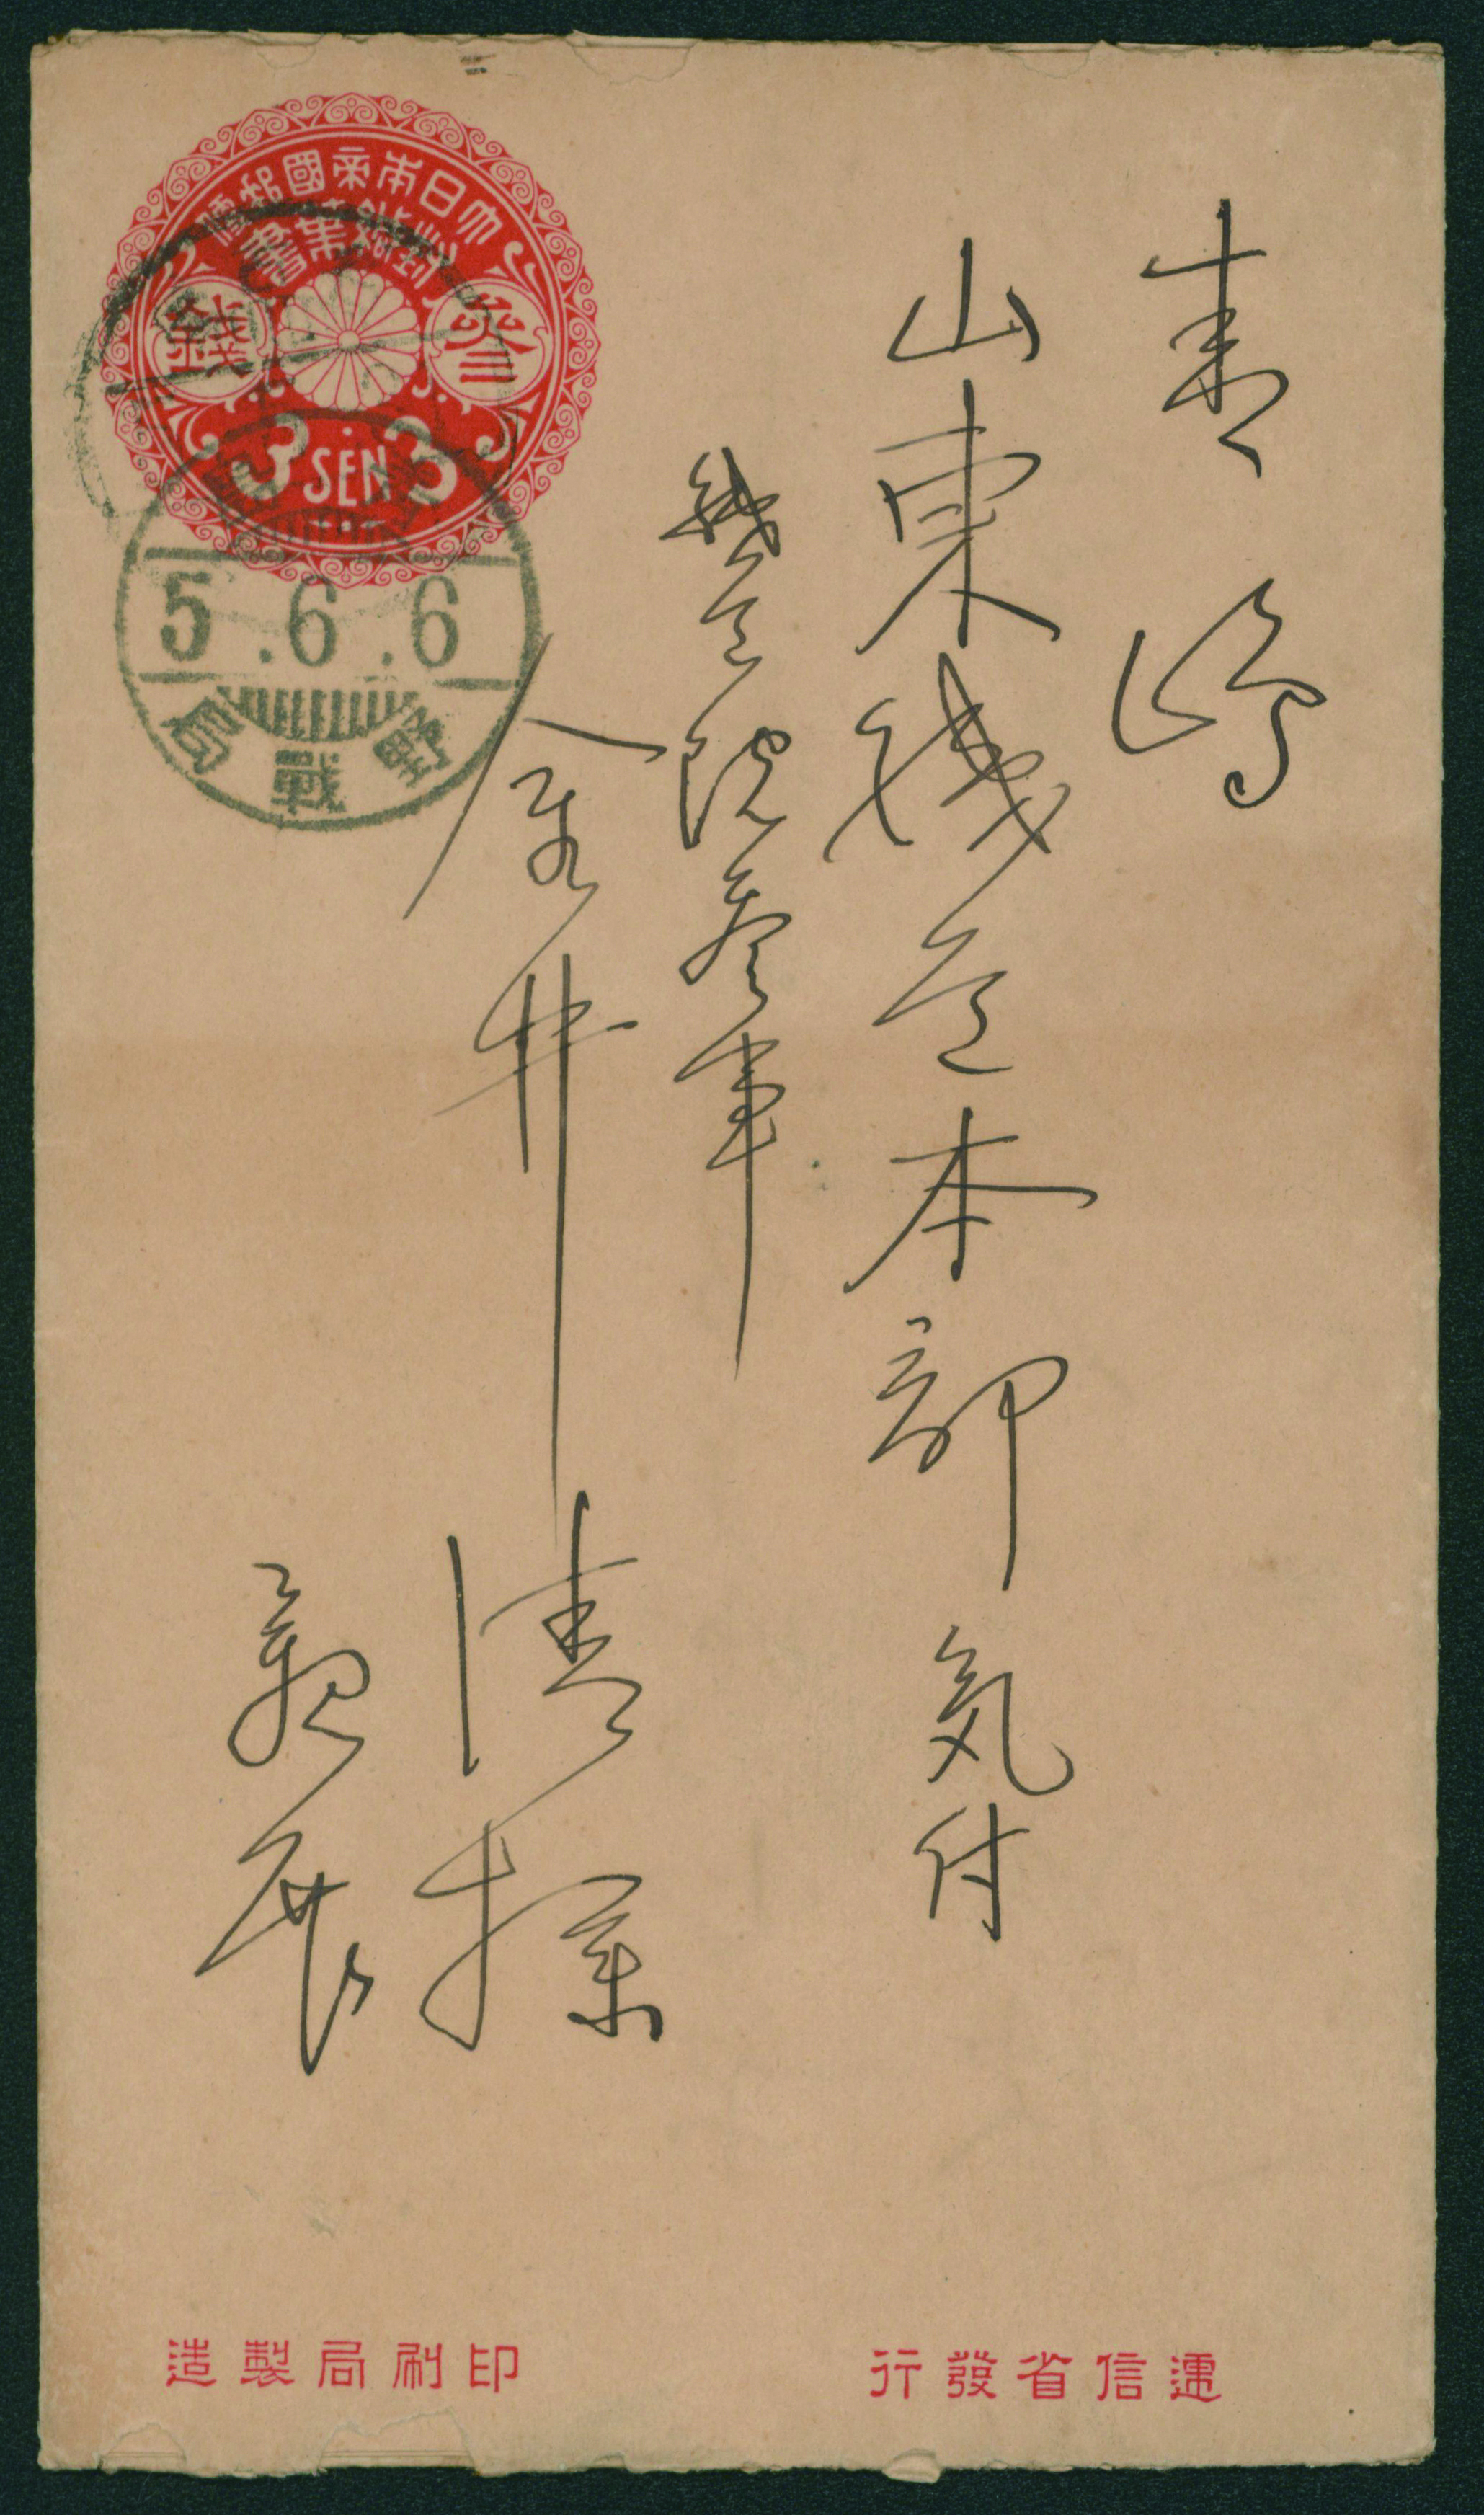 大日本帝國郵便
封緘葉書
參錢
3 SEN 3
5.6.6
野戰局
青嶋
山東鐵道本部気付
鐵道院參事
金井清様
親展
遞信省發行
印刷局製造